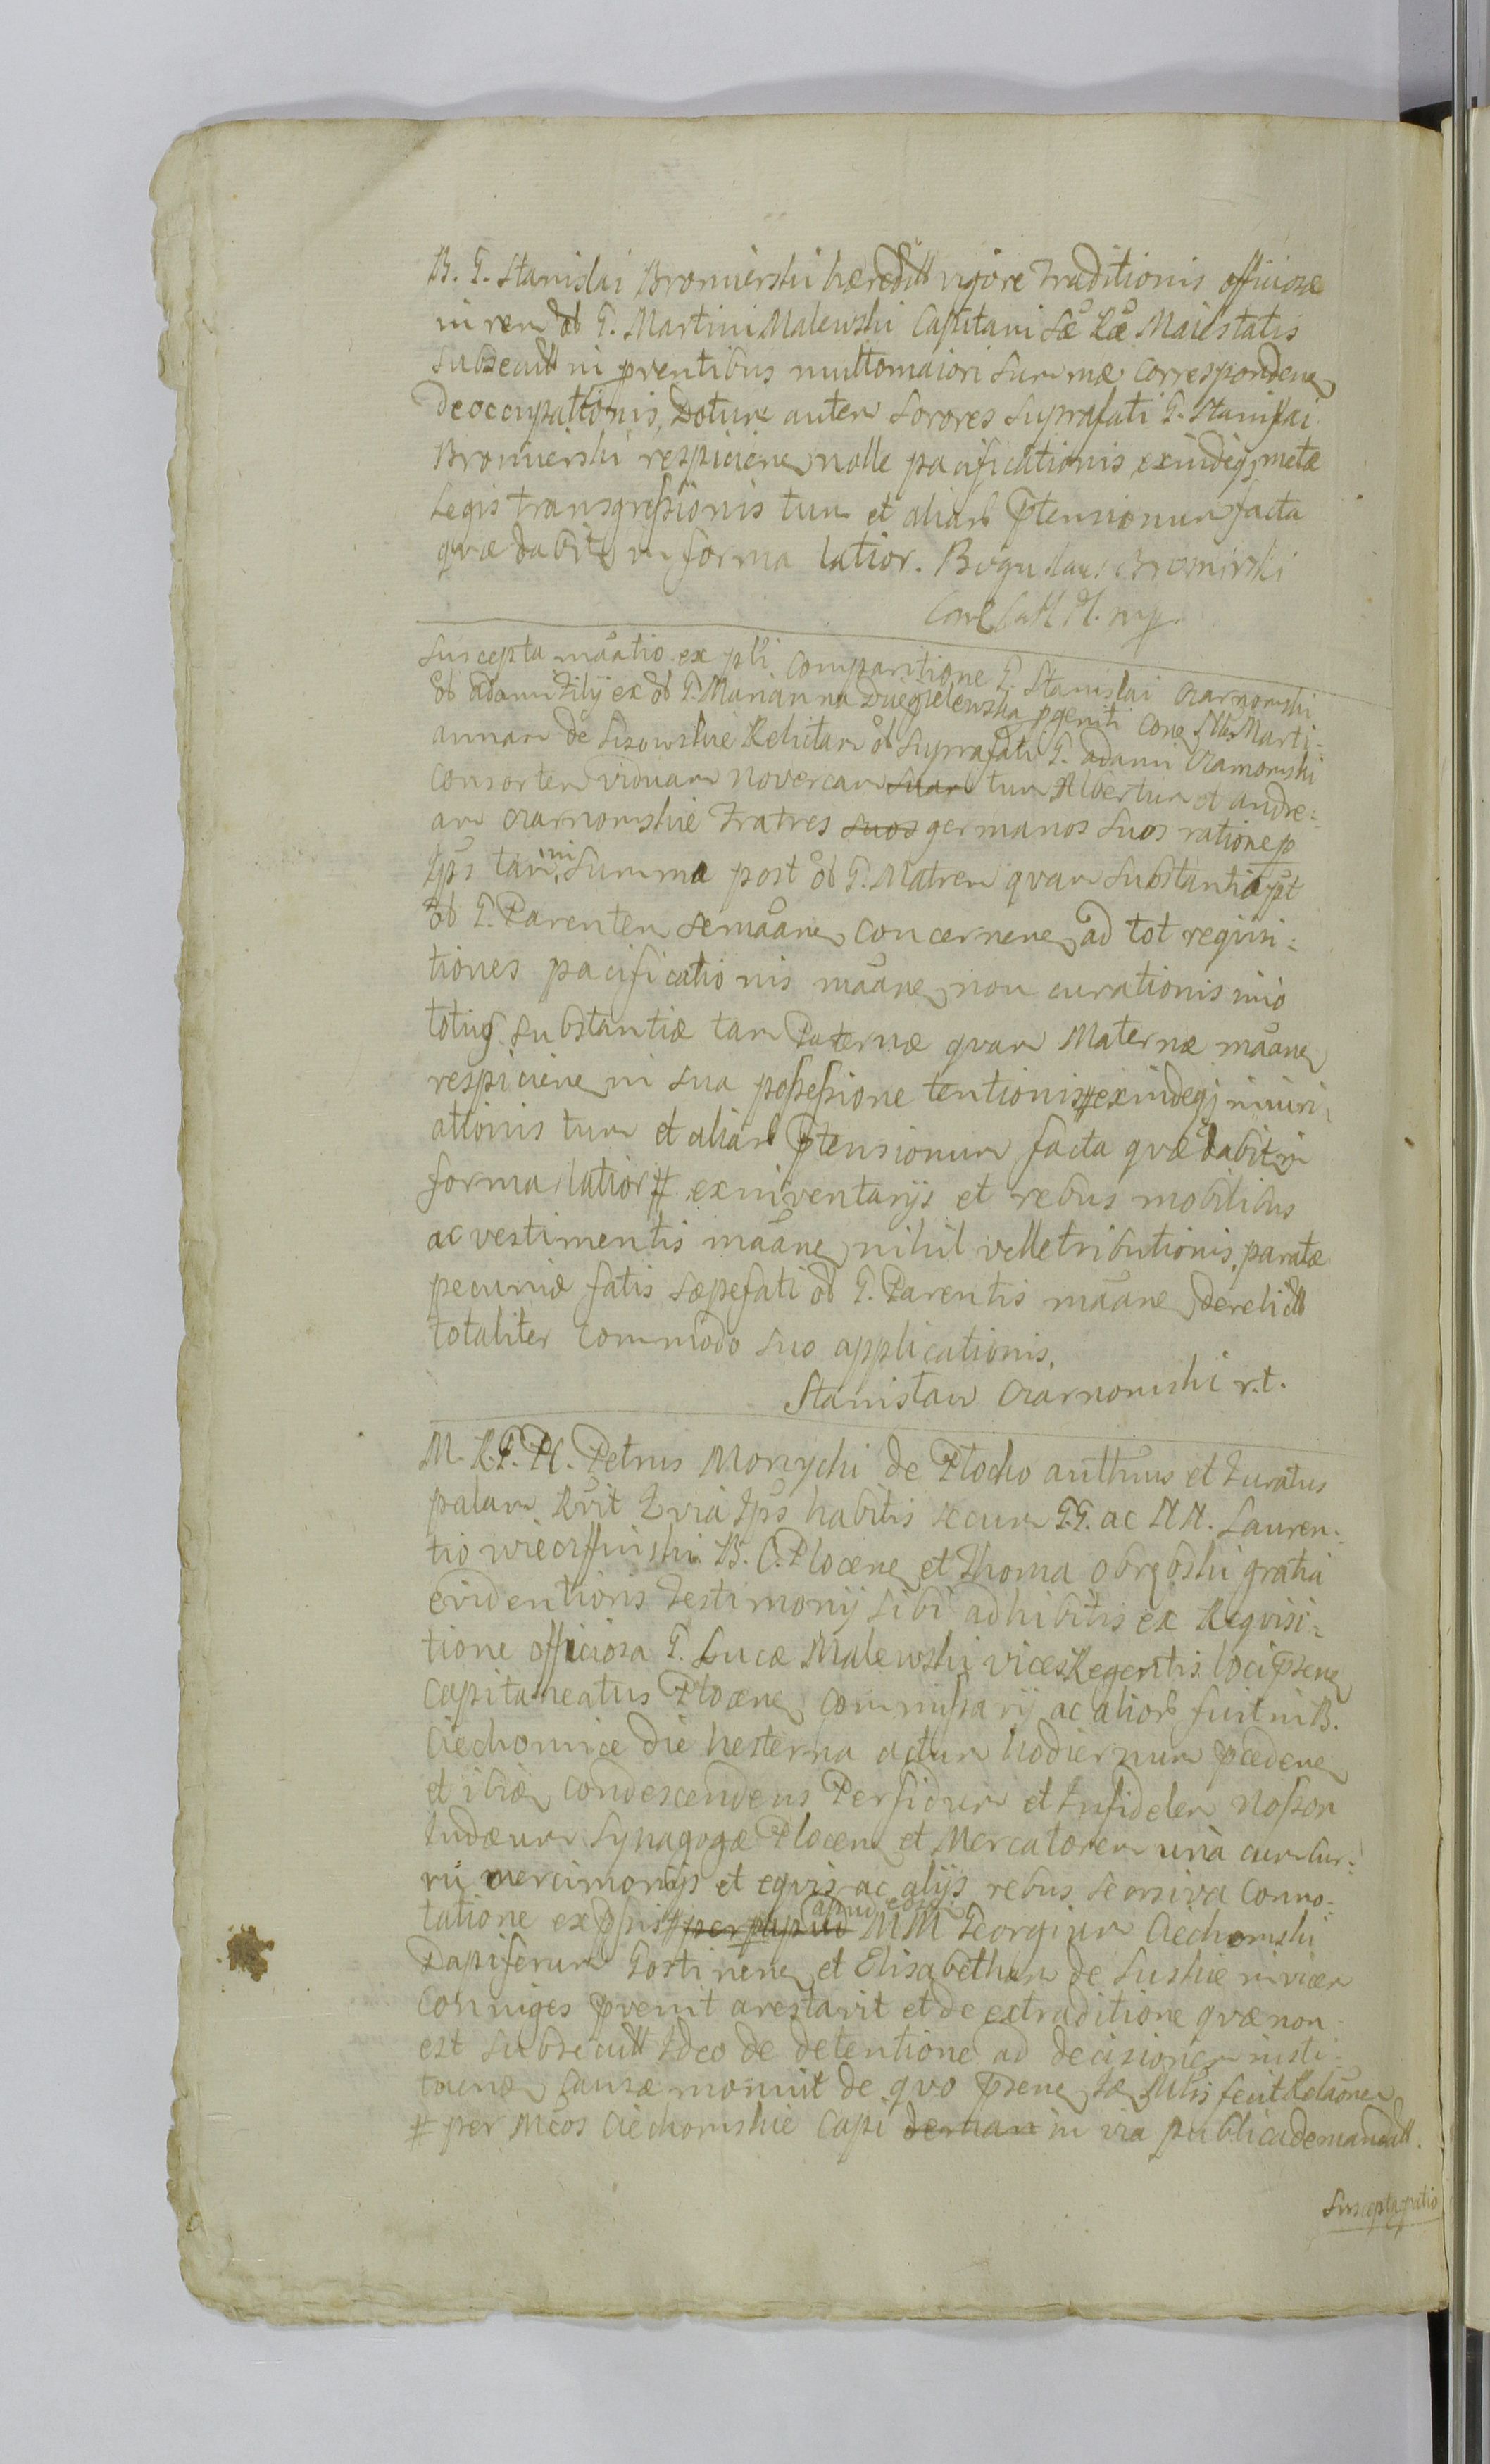 B. G. Stanislai Bromierski hæredit vigore traditionis officiosæ
in rem ob G. Martini Malewski Capitani Sæ Ræ Maiestatis
subsecutt in pventibus multo maiori summæ correspondenẽ
deoccupationis, Dotum autem sorores suprafati G. Stanislai
Bromierski respicienẽ nolle pacificationis exindeqz metæ
Legis transgressionis tum et aliar ptensionum facta
quæ dabitr in forma latior. Boguslaus Bromirski
mp.
Suscepta mãatio ex pti comparitione G. Stanislai Czarnomski
ob adami Filij ex ob G. Marianna Dziegielewska pgeniti Marti-
annam de Lisowskie Relictam ob suprafati G. adami Czarnomski
Consortem viduam novercam suam tum Albertum et andre-
am Czarnomskie Fratres suos germanos suos ratione p
Ips tam in summa post ob G. Matrem quam substantia pt
ob G. Parentem se mãanẽ concernenẽ ad tot requisi-
tiones pacificationis mãanẽ non curationis imo
totius substantiæ tam Paternæ quam Maternæ mãanẽ
respicienẽ in sua possessione tentionis # exindeqz iniuri-
ationis tum et aliar ptensionum facta quæ dabitr in
forma latior # ex inventarijs et rebus mobilibus
ac vestimentis mãanẽ nihil velle tributionis, paratæ
pecuniæ fatis sæpefati ob G. Parentis mãanẽ derelictt
totaliter commodo suo applicationis.
Stanisław Czarnomski r.t.
M. R. P. H. Petrus Morzycki de Plocko autthus et Juratus
palam Rvit Ips habitis secum G.G. ac NN. Lauren-
tio B. C. Plocenẽ et Thoma Obrębski gratia
evidentioris testimonij sibi adhibitis ex Requisi-
tione officiosa G. Lucæ Malewski vices Regentis loci psenẽ
Capitaneatus Plocenẽ commissarij ac alior fuit in B.
Ciechomice die hesterna actum hodiernum pcedenẽ
et ibiẽ condescendens Perfidum et Infidelem Nosson
Iudæum Synagogæ Plocenẽ et Mercatorem unà cum cur-
ru mercimonijs et equis ac alijs rebus seorsiva conno-
tatione expssis # per ptp apud eosd MM Georgium Ciechomski
Dapiferum Gostinenẽ et Elisabetham de Suskie invicem
Conniges pvenit arestavit et de extraditione quæ non
est subsecutt Ideo de detentione ad decisionem insti-
tuenẽ causæ monuit de quo psenẽ sæ fecit Relãonem
# per Mcos Ciechomskie Capi deman in via publica demandatt.
Suscepta mãtio